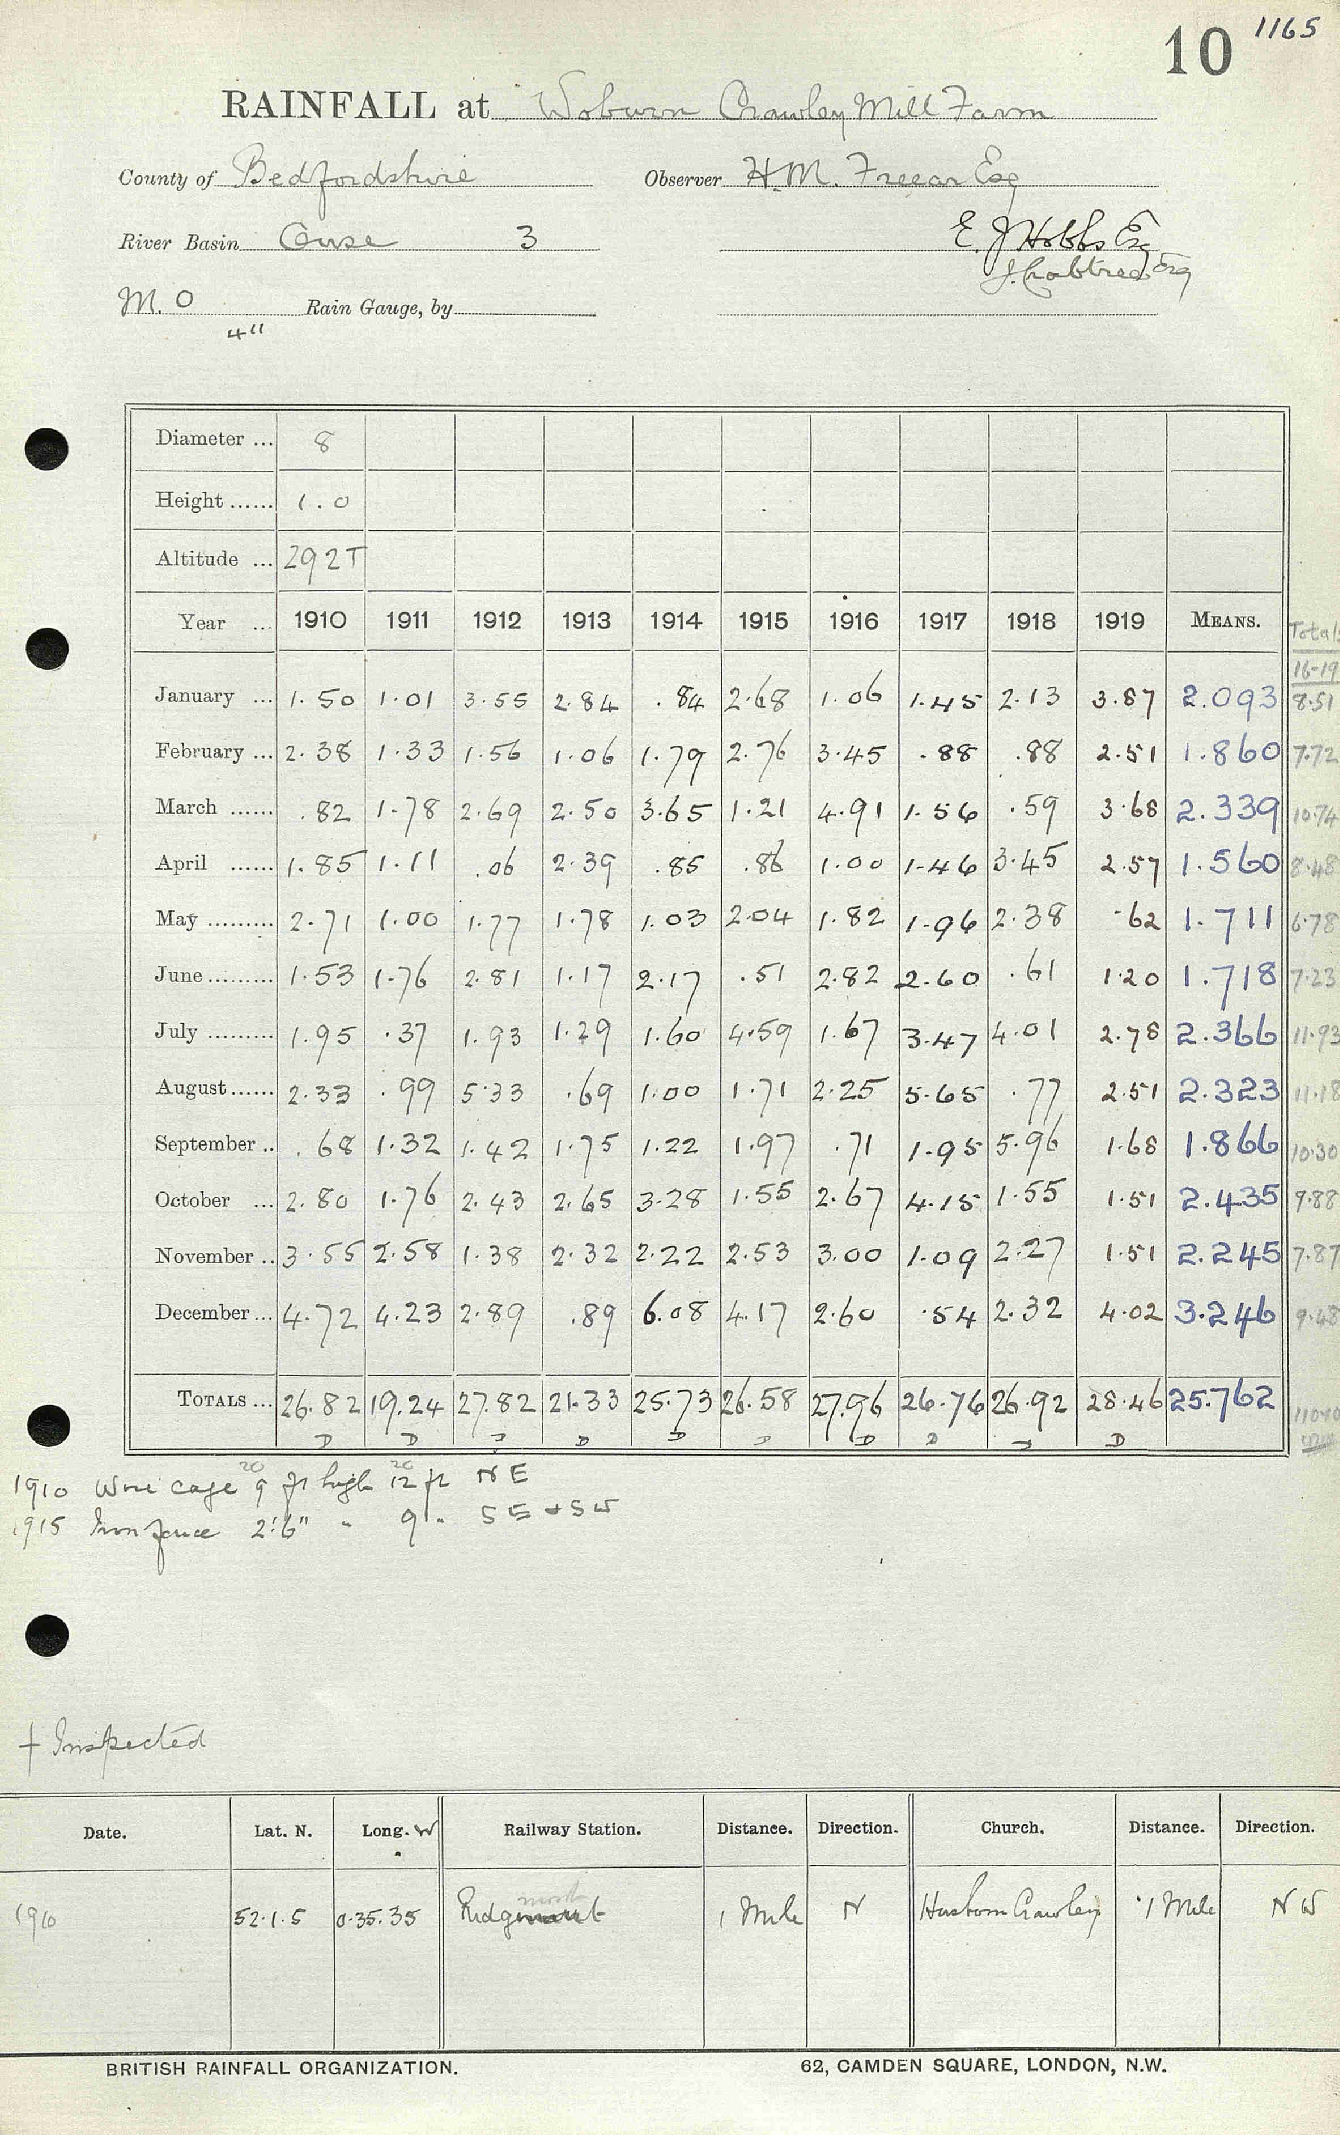 10 1165
RAINFALL at Woburn Crawley Mill Farm
County of Bedfordshire Observer H.M. Freear Esq
River Basin Ouse 3 E. J Hobbs Esq
J. Crabtree Esq
M.O Rain Gauge, by
4"
Diameter ... 8
Height ...... 1.0
Altitude ... 292T
Year ... 1910 1911 1912 1913 1914 1915 1916 1917 1918 1919 MEANS. Totals
16-19
January ... 1.50 1.01 3.55 2.84 .84 2.68 1.06 1.45 2.13 3.87 2.093 8.51
February ... 2.38 1.33 1.56 1.06 1.79 2.76 3.45 .88 .88 2.51 1.860 7.72
March ...... .82 1.78 2.69 2.50 3.65 1.21 4.91 1.56 .59 3.68 2.339 10.74
April ...... 1.85 1.11 .06 2.39 .85 .86 1.00 1.46 3.45 2.57 1.560 8.48
May ......... 2.71 1.00 1.77 1.78 1.03 2.04 1.82 1.96 2.38 .62 1.711 6.78
June ......... 1.53 1.76 2.81 1.17 2.17 .51 2.82 2.60 .61 1.20 1.718 7.23
July ......... 1.95 .37 1.93 1.29 1.60 4.59 1.67 3.47 4.01 2.78 2.366 11.93
August ...... 2.33 .99 5.33 .69 1.00 1.71 2.25 5.65 .77 2.51 2.323 11.18
September .. .68 1.32 1.42 1.75 1.22 1.97 .71 1.95 5.96 1.68 1.866 10.30
October ... 2.80 1.76 2.43 2.65 3.28 1.55 2.67 4.15 1.55 1.51 2.435 9.88
November .. 3.55 2.58 1.38 2.32 2.22 2.53 3.00 1.09 2.27 1.51 2.245 7.87
December ... 4.72 4.23 2.89 .89 6.08 4.17 2.60 .54 2.32 4.02 3.246 9.48
TOTALS ... 26.82 19.24 27.82 21.33 25.73 26.58 27.96 26.76 26.92 28.46 25.762 110.10
D D D D D D D D D D
1910 Wire cage 9 20 ft high 12 20 ft NE
1915 Iron fence 2'.6" " 9 " SE + SW
+ Inspected
Date. Lat. N. Long. W Railway Station. Distance. Direction. Church. Distance. Direction.
mont
1910 52.1.5 0.35.35 Ridgmont 1 Mile N Husborn Crawley 1 Mile NW
BRITISH RAINFALL ORGANIZATION. 62, CAMDEN SQUARE, LONDON, N.W.